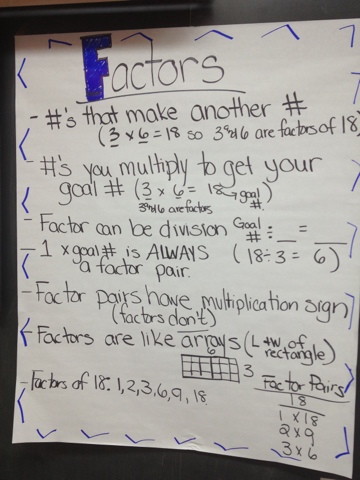 Factors
- #'s that make another #
(3 x 6 = 18 so 3 and 6 are factors of 18)
- #'s you multiply to get your
goal # (3 x 6 = 18 → goal #)
3 and 6 are factors
- Factor can be division Goal # ÷ __ = __
- 1 x goal # is ALWAYS (18 ÷ 3 = 6)
a factor pair.
- Factor pairs have multiplication sign
(factors don't)
- Factors are like arrays (L + W of
rectangle)
6
3
- Factors of 18: 1, 2, 3, 6, 9, 18
Factor Pairs
18
1 x 18
2 x 9
3 x 6